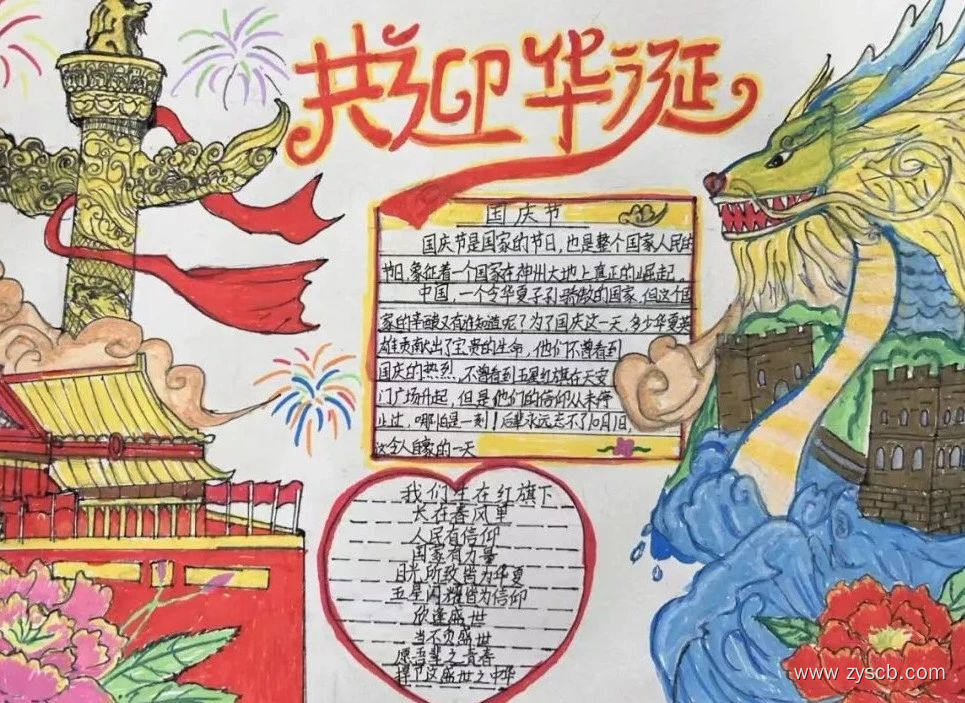 共迎华诞
国庆节
国庆节是国家的节日,也是整个国家人民的
节日,象征着一个国家在神州大地上真正的崛起。
中国,一个令华夏子孙骄傲的国家,但这个国
家的辛酸又有谁知道呢?为了国庆这一天,多少华夏英
雄贡献出了宝贵的生命,他们不曾看到
国庆的热烈,不曾看到五星红旗在天安
门广场升起,但是他们的信仰从未停
止过,哪怕是一刻!后辈永远忘不了10月1日,
这令人自豪的一天
我们生在红旗下
长在春风里
人民有信仰
国家有力量
目光所致皆为华夏
五星闪耀皆为信仰
欣逢盛世
当不负盛世
愿吾辈之青春
捍卫这盛世之中华
www.zyscb.com